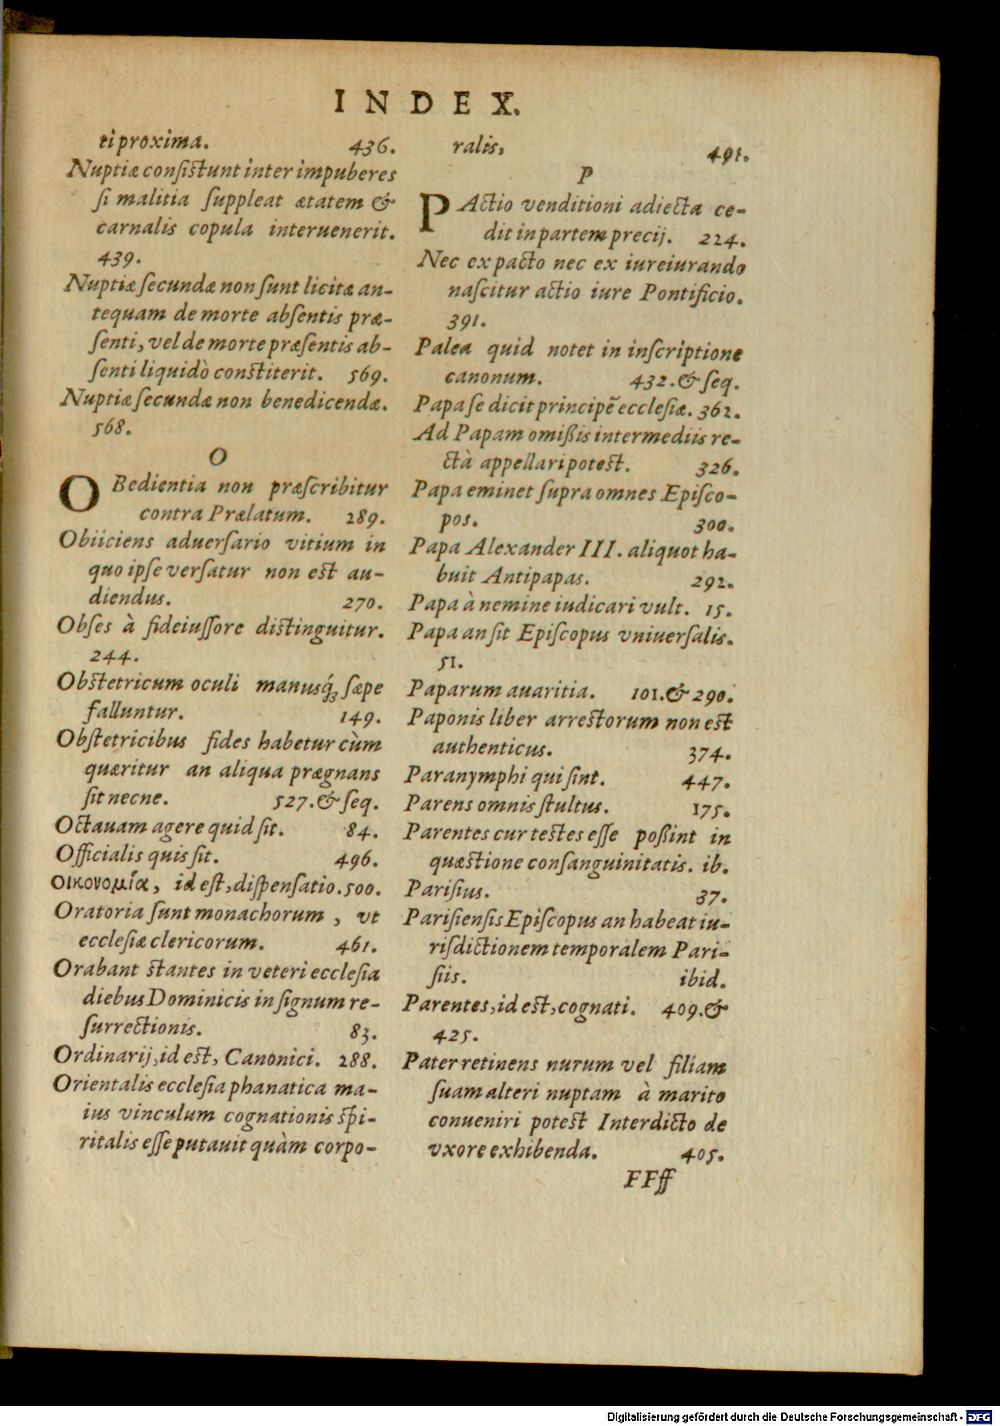 INDEX.
ti proxima. 436.
Nuptiæ consistunt inter impuberes
si malitia suppleat ætatem &
carnalis copula interuenerit.
439.
Nuptiæ secundæ non sunt licitæ an-
tequam de morte absentis præ-
senti, vel de morte præsentis ab-
senti liquidò constiterit. 569.
Nuptiæ secundæ non benedicendæ.
568.
O
OBedientia non præscribitur
contra Prælatum. 289.
Obiiciens aduersario vitium in
quo ipse versatur non est au-
diendus. 270.
Obses à fideiussore distinguitur.
244.
Obstetricum oculi manusq́; sæpe
falluntur. 149.
Obstetricibus fides habetur cùm
quæritur an aliqua prægnans
sit necne. 527. & seq.
Octauam agere quid sit. 84.
Officialis quis sit. 496.
οικονομία, id est, dispensatio. 500.
Oratoria sunt monachorum, vt
ecclesiæ clericorum. 461.
Orabant stantes in veteri ecclesia
diebus Dominicis in signum re-
surrectionis. 83.
Ordinarij, id est, Canonici. 288.
Orientalis ecclesia phanatica ma-
ius vinculum cognationis spi-
ritalis esse putauit quàm corpo-
ralis, 491.
P
PActio venditioni adiecta ce-
dit in partem precij. 224.
Nec ex pacto nec ex iureiurando
nascitur actio iure Pontificio.
391.
Palea quid notet in inscriptione
canonum. 432. & seq.
Papa se dicit principē ecclesiæ. 362.
Ad Papam omißis intermediis re-
ctà appellari potest. 326.
Papa eminet supra omnes Episco-
pos. 300.
Papa Alexander III. aliquot ha-
buit Antipapas. 292.
Papa à nemine iudicari vult. 15.
Papa an sit Episcopus vniuersalis.
51.
Paparum auaritia. 101. & 290.
Paponis liber arrestorum non est
authenticus. 374.
Paranymphi qui sint. 447.
Parens omnis stultus. 175.
Parentes cur testes esse poßint in
quæstione consanguinitatis. ib.
Parisius. 37.
Parisiensis Episcopus an habeat iu-
risdictionem temporalem Pari-
siis. ibid.
Parentes, id est, cognati. 409. &
425.
Pater retinens nurum vel filiam
suam alteri nuptam à marito
conueniri potest Interdicto de
vxore exhibenda. 405.
FFff
Digitalisierung gefördert durch die Deutsche Forschungsgemeinschaft - DFG